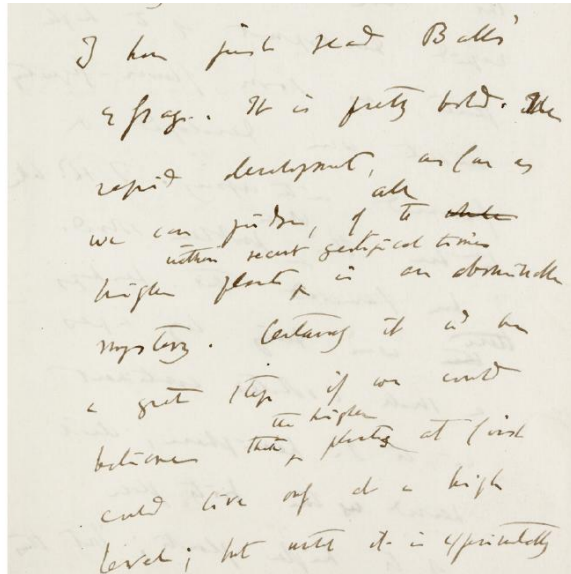 I have just read Balls'
Essay. It is pretty bold. The
rapid development, as far as
all
we can judge, of the
within recent geological times
higher plants is an abominable
mystery. Certainly it wd be
a great step if we could
the higher
believe that plants at first
could live only at a high
level; but until it is experimentally